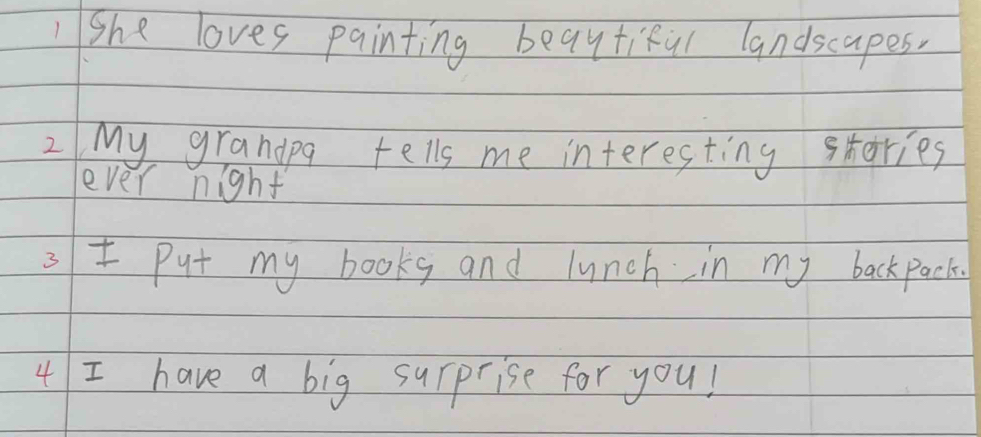 1 She loves painting beautiful landscapes.
2 My grandpa tells me interesting stories
ever night
3 I put my books and lunch in my backpack.
4 I have a big surprise for you!